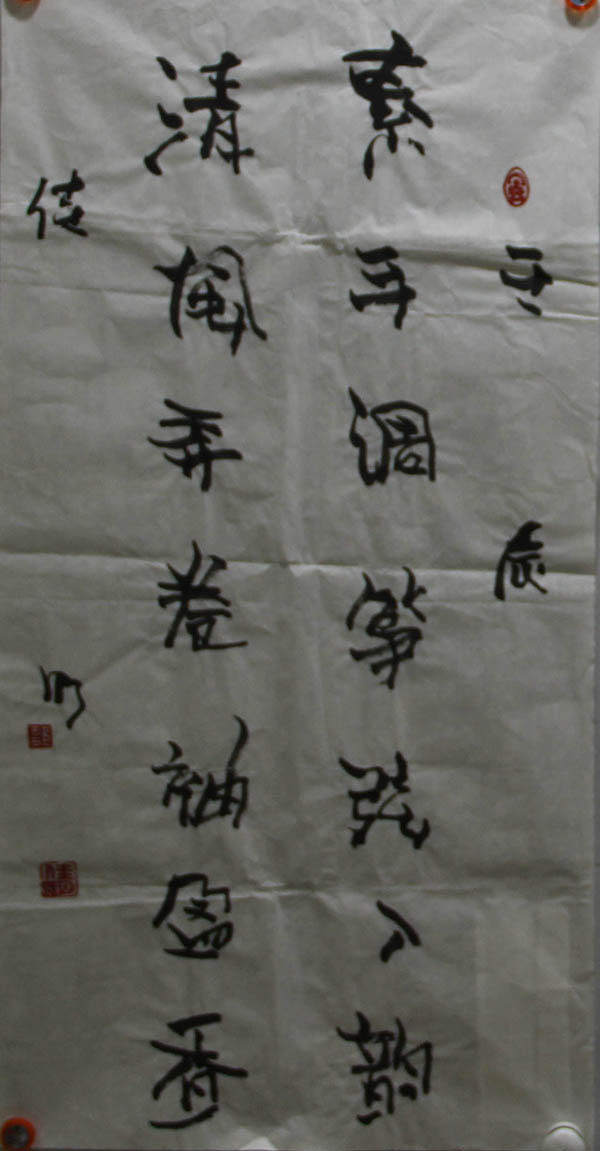 壬辰
素手调筝弦入韵
清风弄卷袖盈香